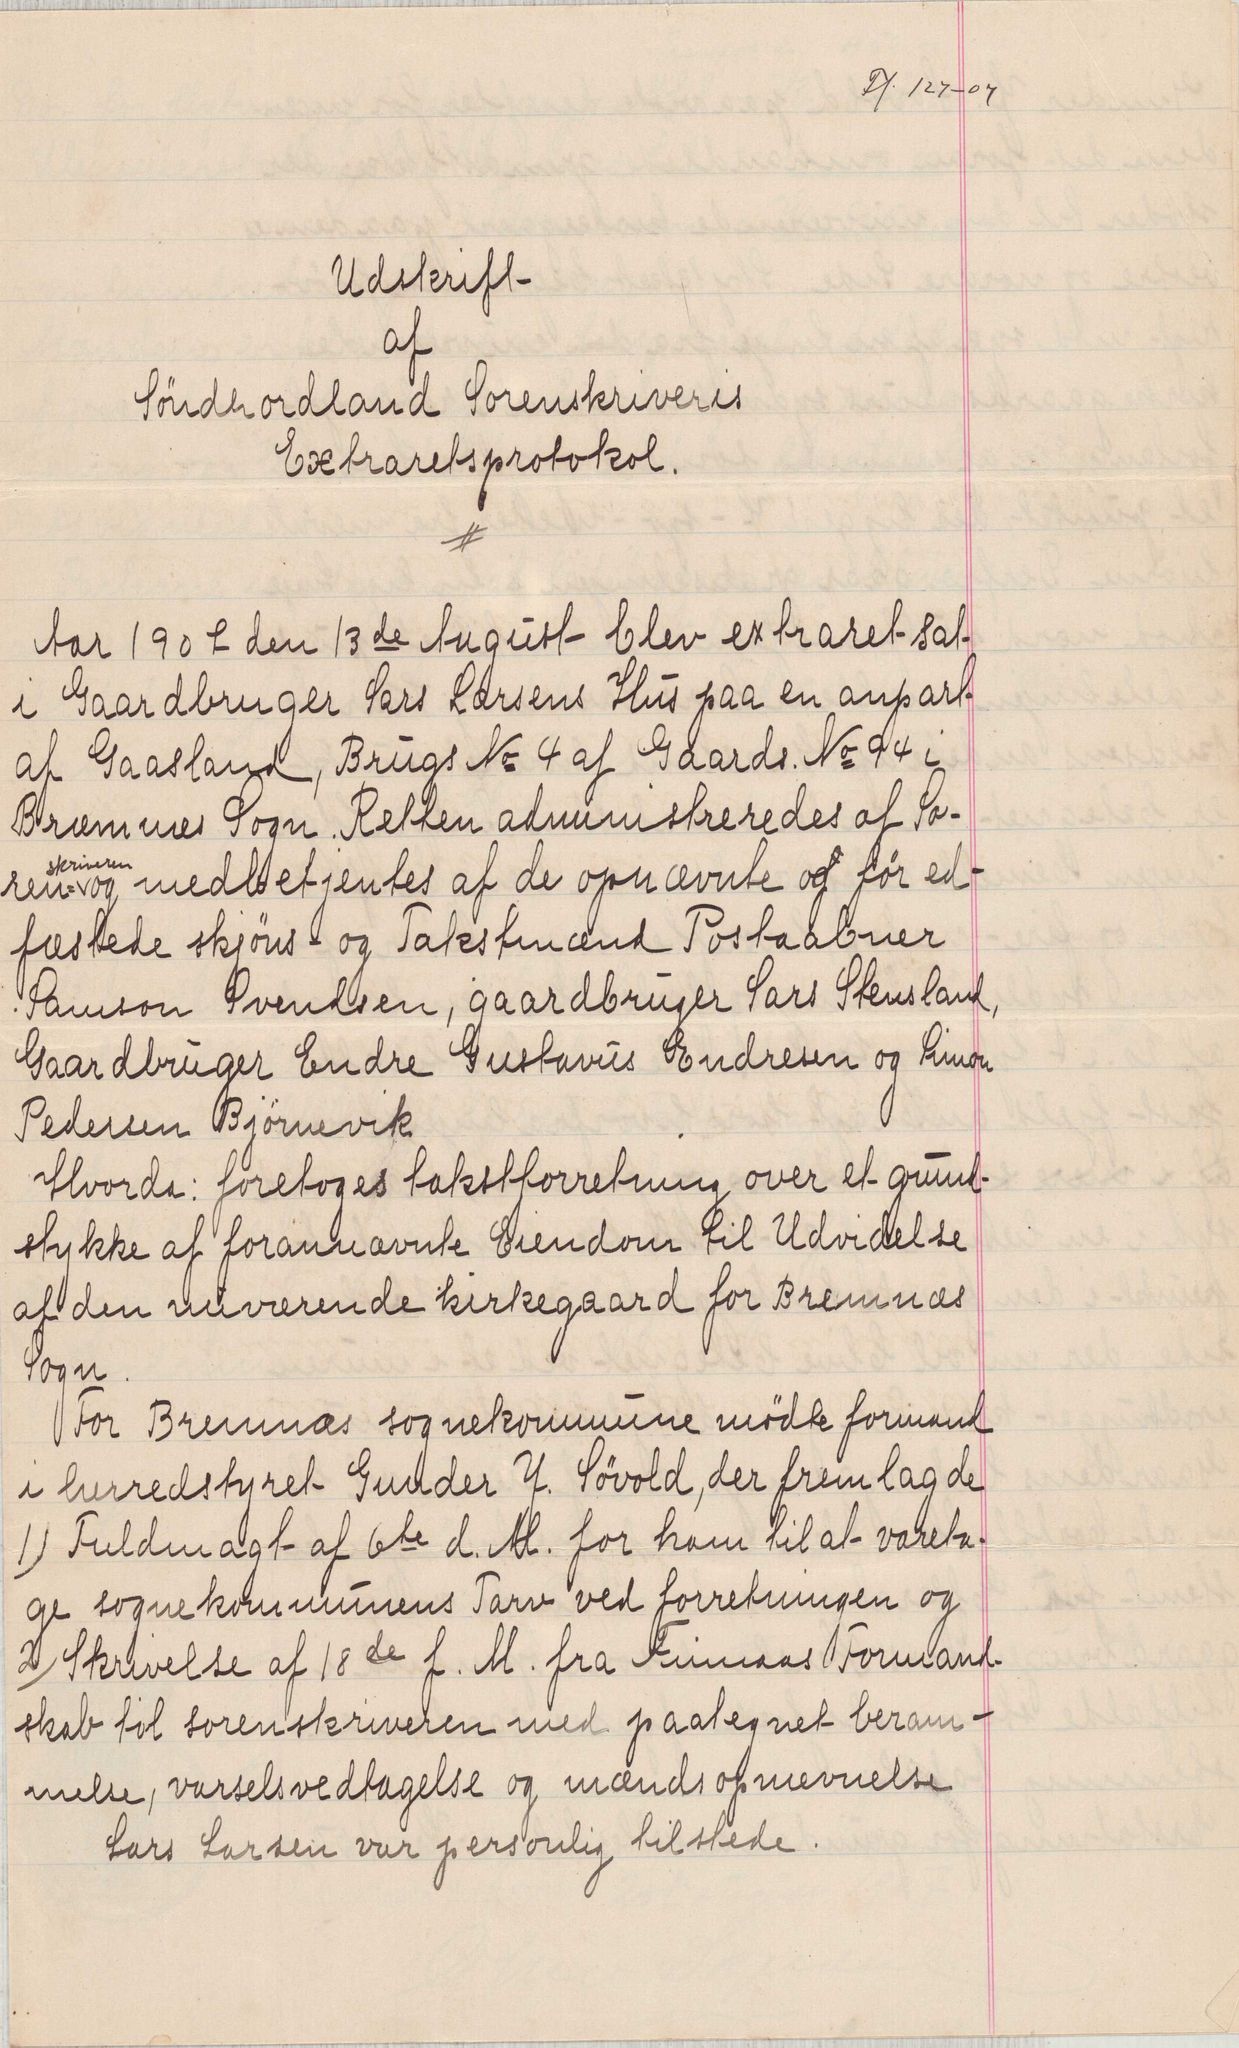 127-07
Udskrift
af
Söndhordland Sorenskriveris
Extraretsprotokol.
Aar 1907 den 13de August blev extraret sat
i Gaardbruger Lars Larsens Hus paa en anpart
af Gaasland, Brugs No 4 af Gaards. No 94 i
Bræmnes Sogn. Retten administreredes af So-
skriveren
ren= og medbetjentes af de opnævnte og før ed-
fæstede skjöns- og Takstmænd Postaabner
Samson Svendsen, gaardbruger Lars Stensland,
Gaardbruger Endre Gustavus Endresen og Simon
Pedersen Björnevik
Hvorda: foretoges takstforretning over et grund-
stykke af forannævnte Eiendom til Udvidelse
af den nuværende kirkegaard for Bremnæs
Sogn.
For Bremnæs sognekommune mödte formand
i herredstyret Gunder Y. Sövold, der fremlagde
1) Fuldmagt af 6te d. M. for ham til at vareta-
ge sognekommunens Tarv ved forretningen og
2) Skrivelse af 18de f. M. fra Finnaas Formand-
skab til sorenskriveren med paategnet beram-
melse, varselsvedtagelse og mændsopnævnelse
Lars Larsen var personlig tilstede.